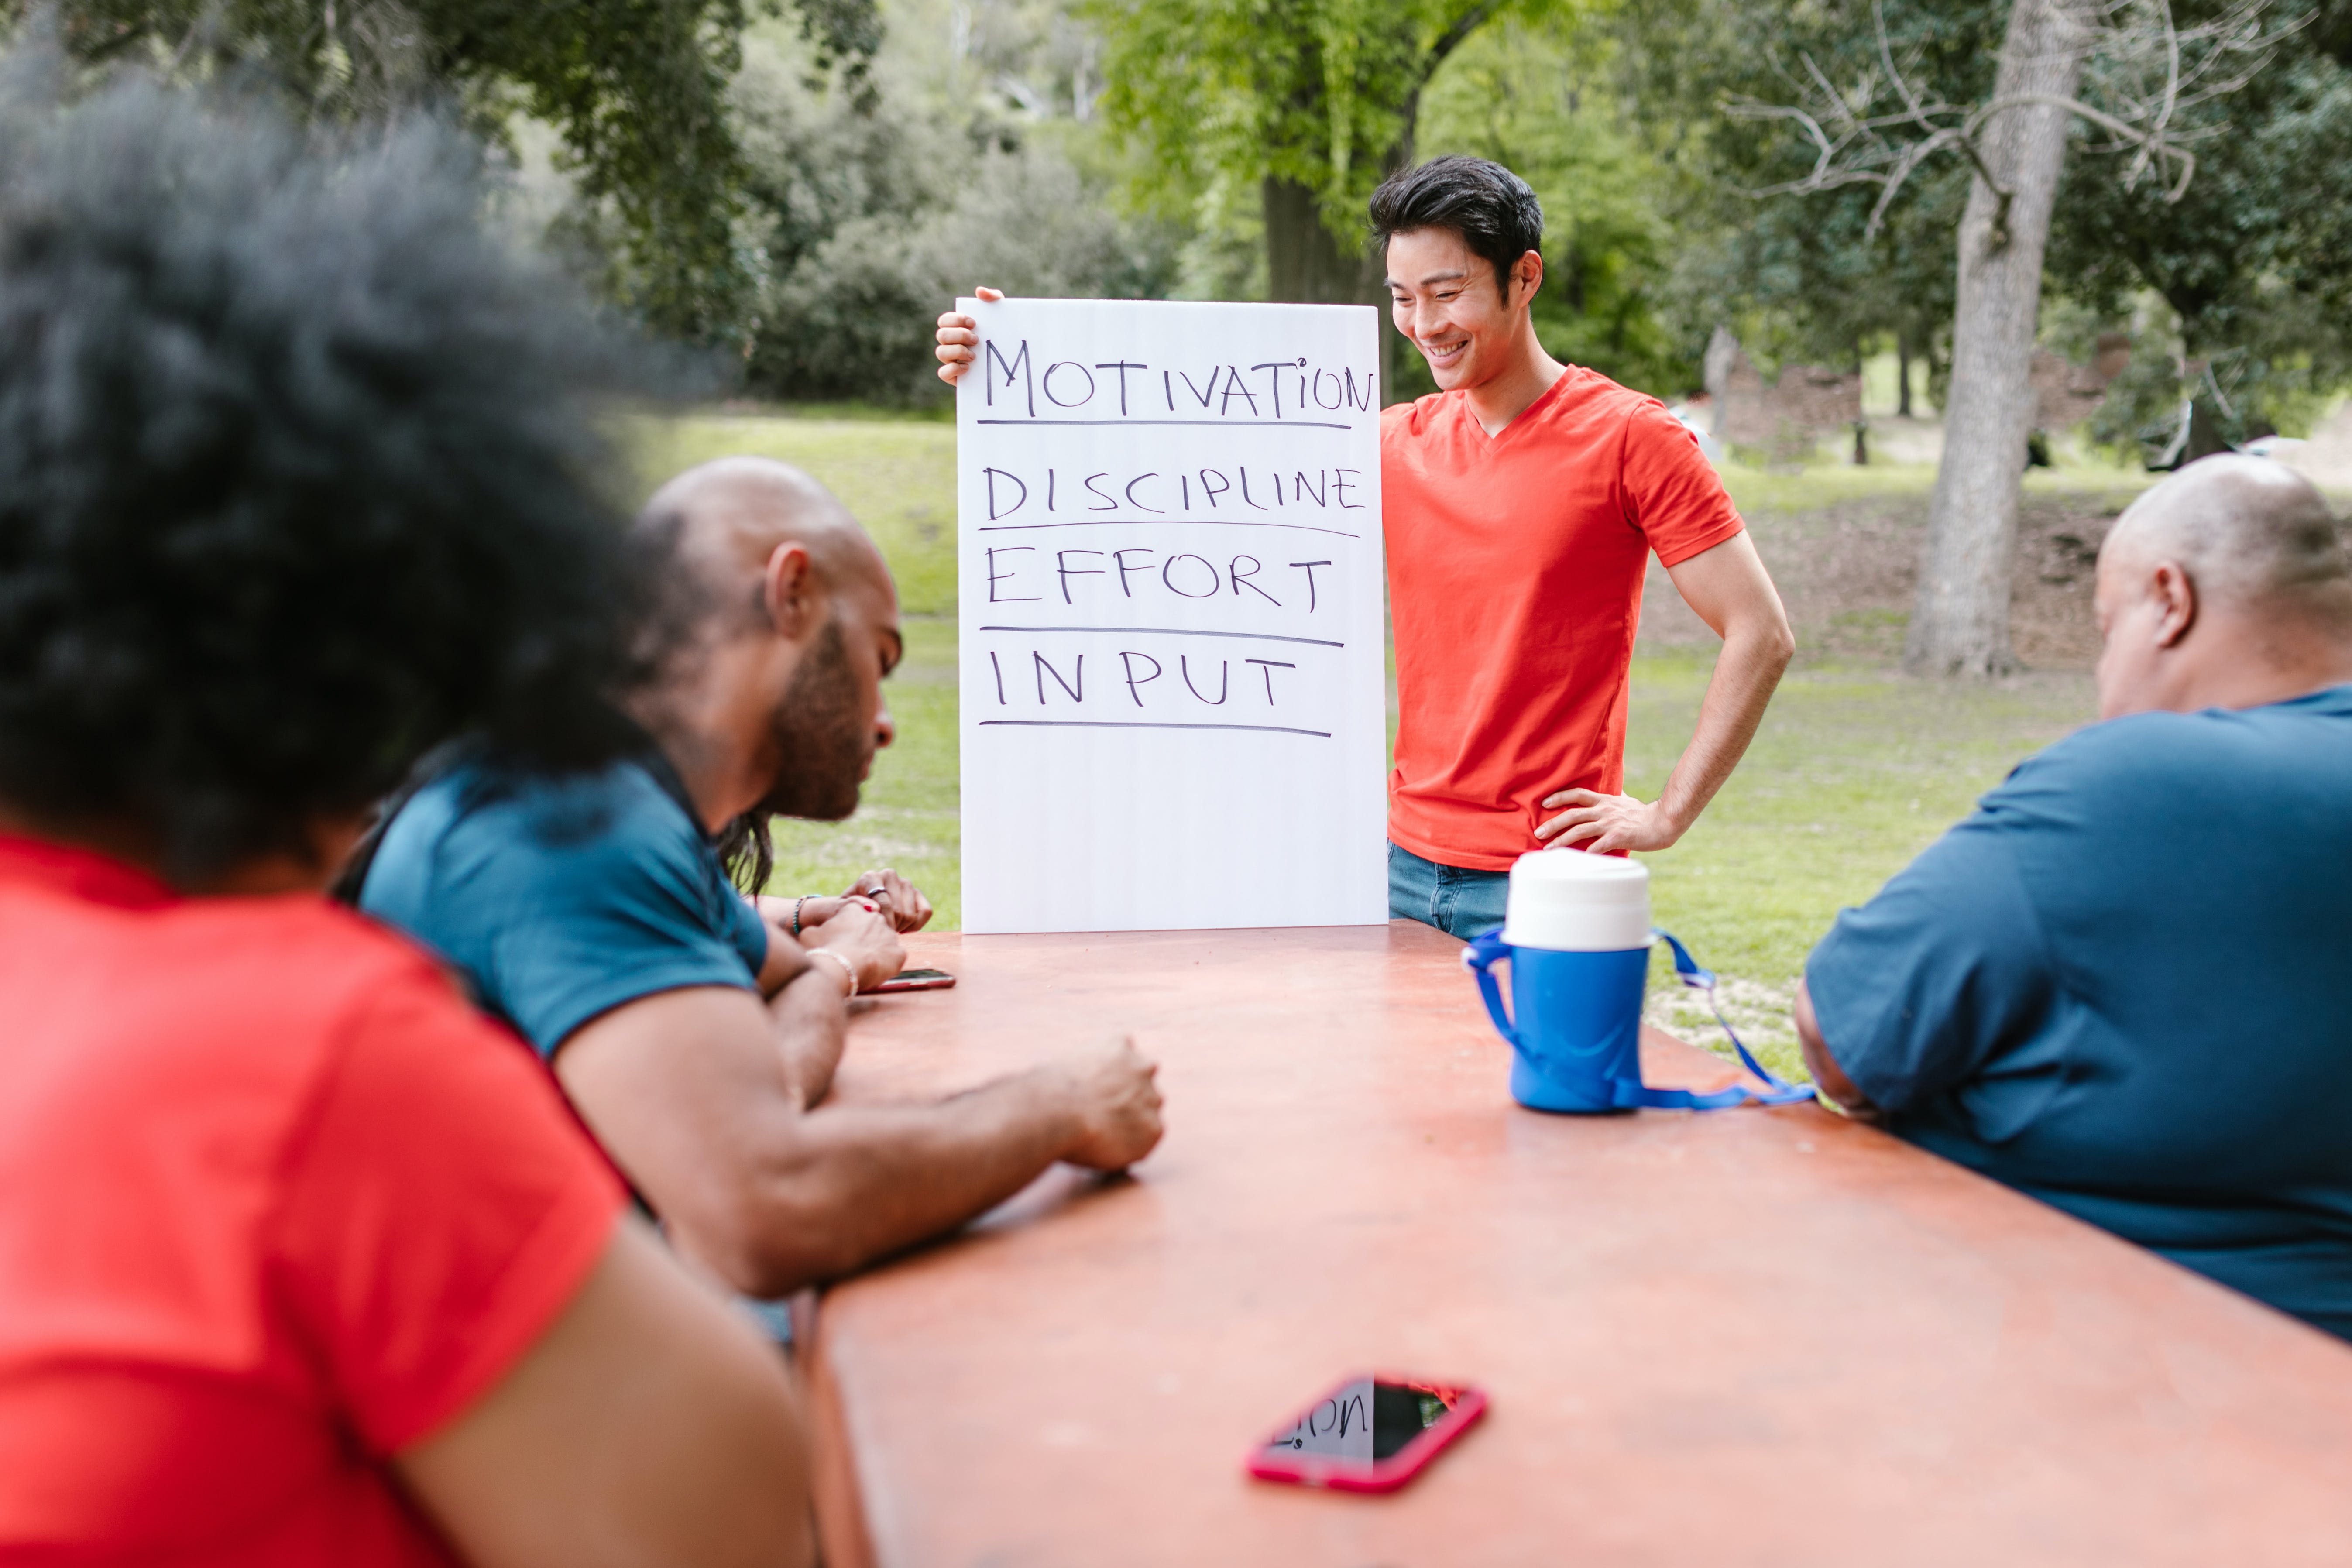 MOTIVATiON
DISCIPLINE
EFFORT
INPUT